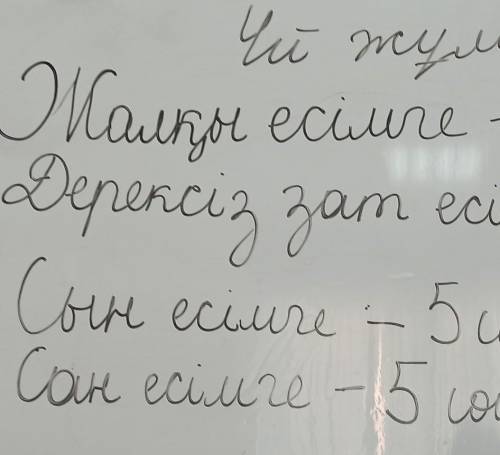 Үй жұм
Жалқы есімге -
Дерексіз зат есі
Сын есімге - 5 с
Сан есімге - 5 сө